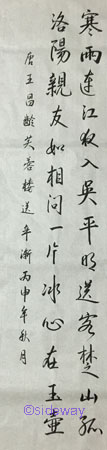 寒雨連江夜入吴平明送客楚山孤
洛陽親友如相問一片冰心在玉壺
唐王昌齡芙蓉樓送辛漸丙申年秋月
©sideway